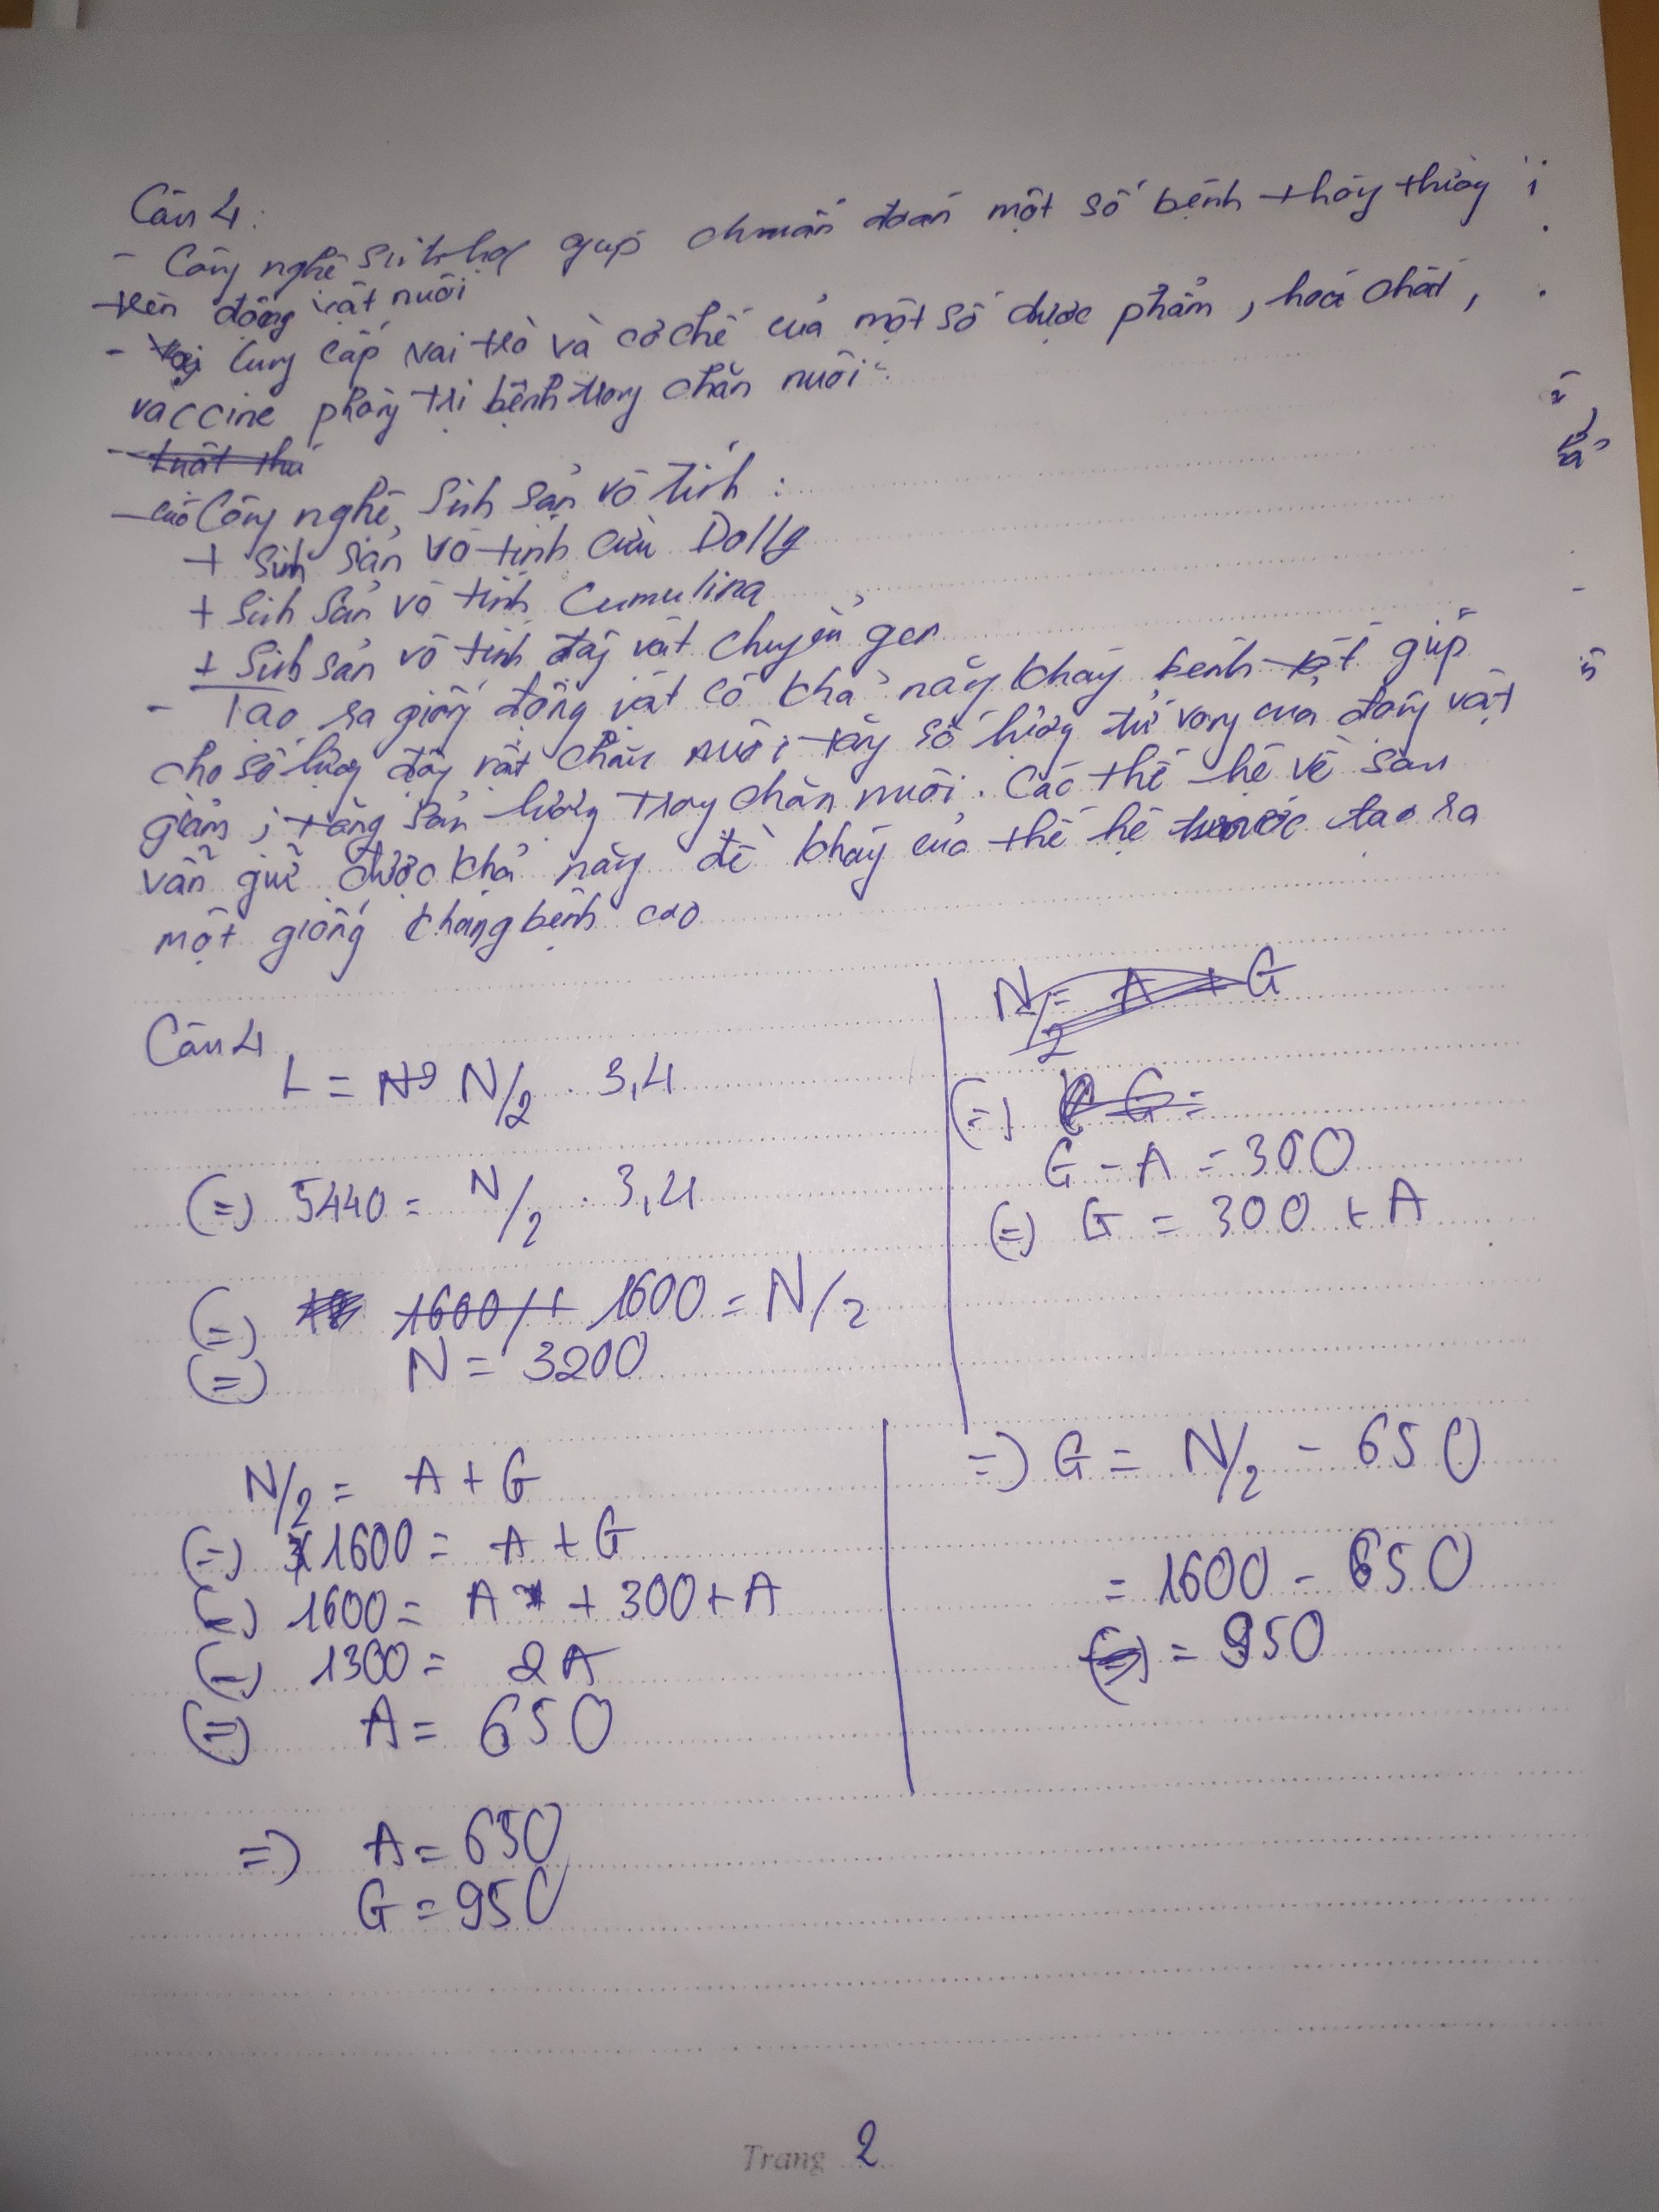 Câu 4:
- Công nghệ sinh học giúp chuẩn đoán một số bệnh thông thường
trên động vật nuôi
- Cung cấp vai trò và cơ chế của một số dược phẩm, hoá chất,
vaccine phòng trị bệnh trong chăn nuôi.
- Luật thú
- Công nghệ sinh sản vô tính:
+ Sinh sản vô tính cừu Dolly
+ Sinh sản vô tính Cumulina
+ Sinh sản vô tính động vật chuyển gen
- Tạo ra giống động vật có khả năng kháng bệnh tốt giúp
cho số lượng động vật chăn nuôi tăng số lượng tử vong của động vật
giảm, tăng sản lượng trong chăn nuôi. Các thế hệ về sau
vẫn giữ được khả năng đề kháng của thế hệ trước tạo ra
một giống kháng bệnh cao
Câu 4
L = N/2 . 3,4
(=) 5440 = N/2 . 3,4
(=) 1600/1 1600 = N/2
(=) N = 3200
N/2 = A + G
(=) G =
G - A = 300
(=) G = 300 + A
N/2 = A + G
(=) 1600 = A + G
(=) 1600 = A + 300 + A
(=) 1300 = 2A
(=) A = 650
=) G = N/2 - 650
= 1600 - 650
= 950
=) A = 650
G = 950
Trang 2